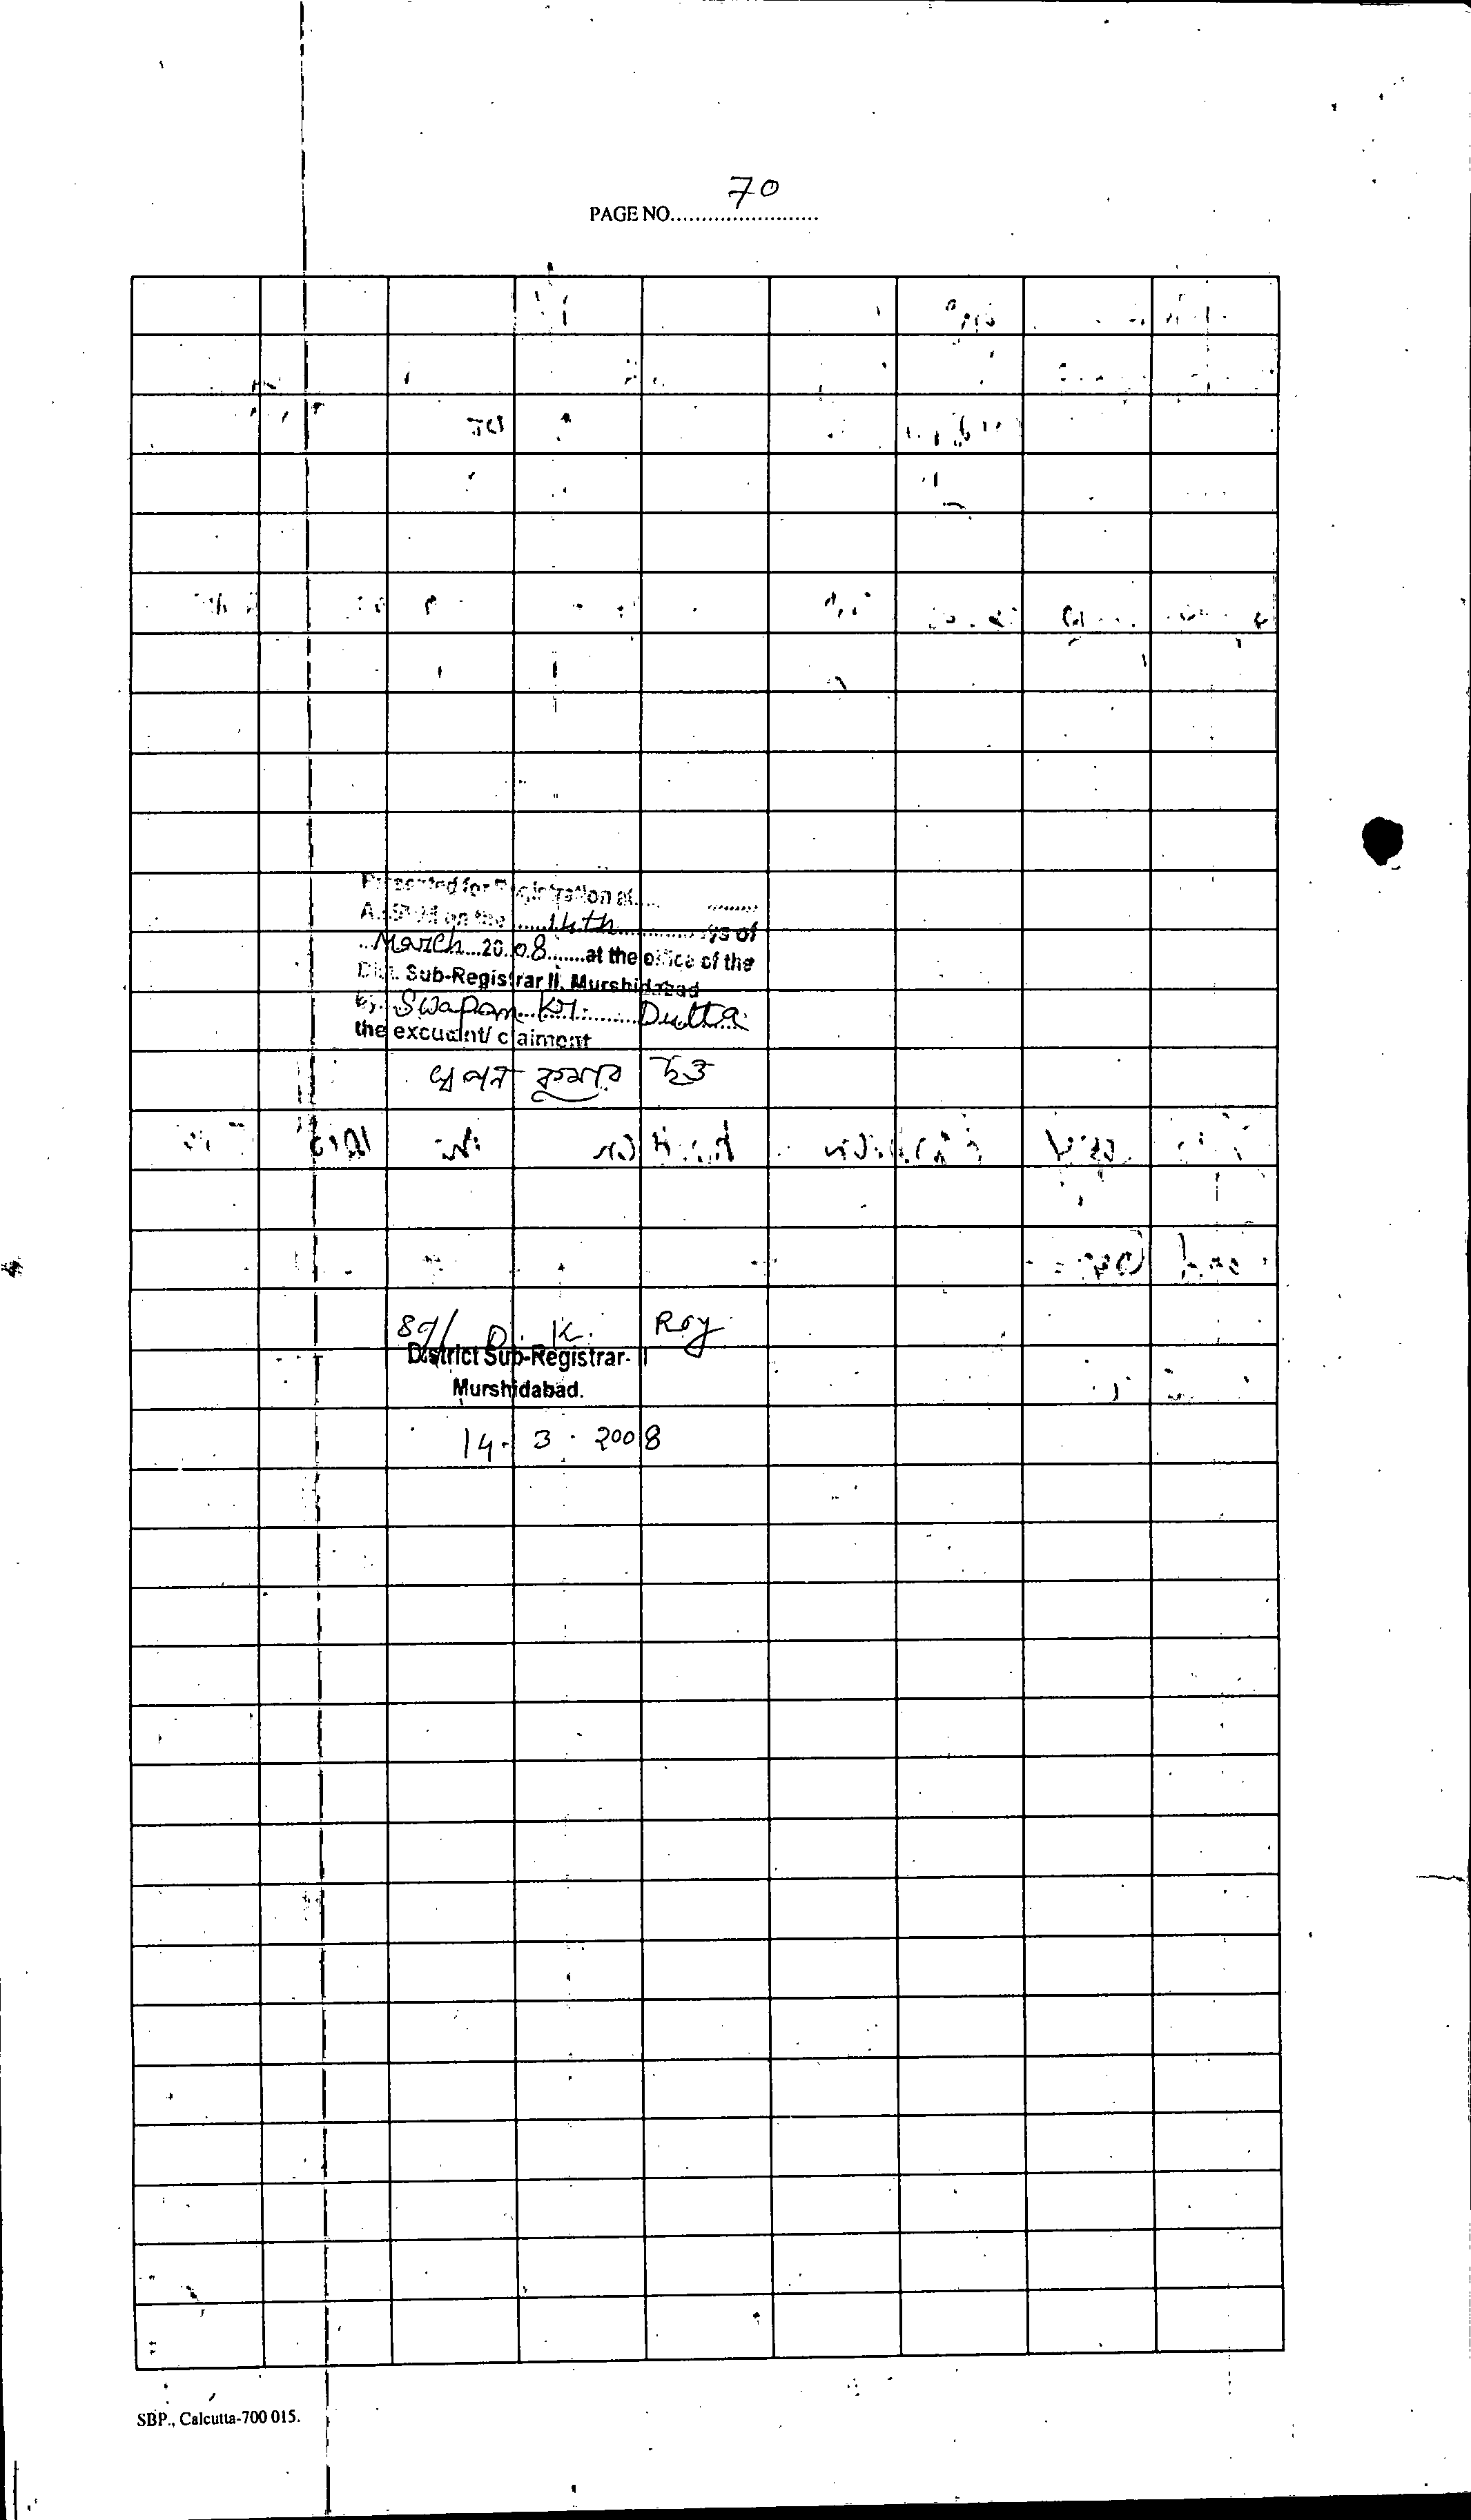 70
PAGE NO........................
Presented for Registration at.... ........
A.M/P.M on the ......14th.............. of
..March...20.08.......at the office of the
Dist. Sub-Registrar II, Murshidabad
by Swapan..Kr:.........Dutta
the excutant/ claiment
স্বপন কুমার দত্ত
Sd/ D. K. Roy
District Sub-Registrar- II
Murshidabad.
14. 3. 2008
SBP., Calcutta-700 015.